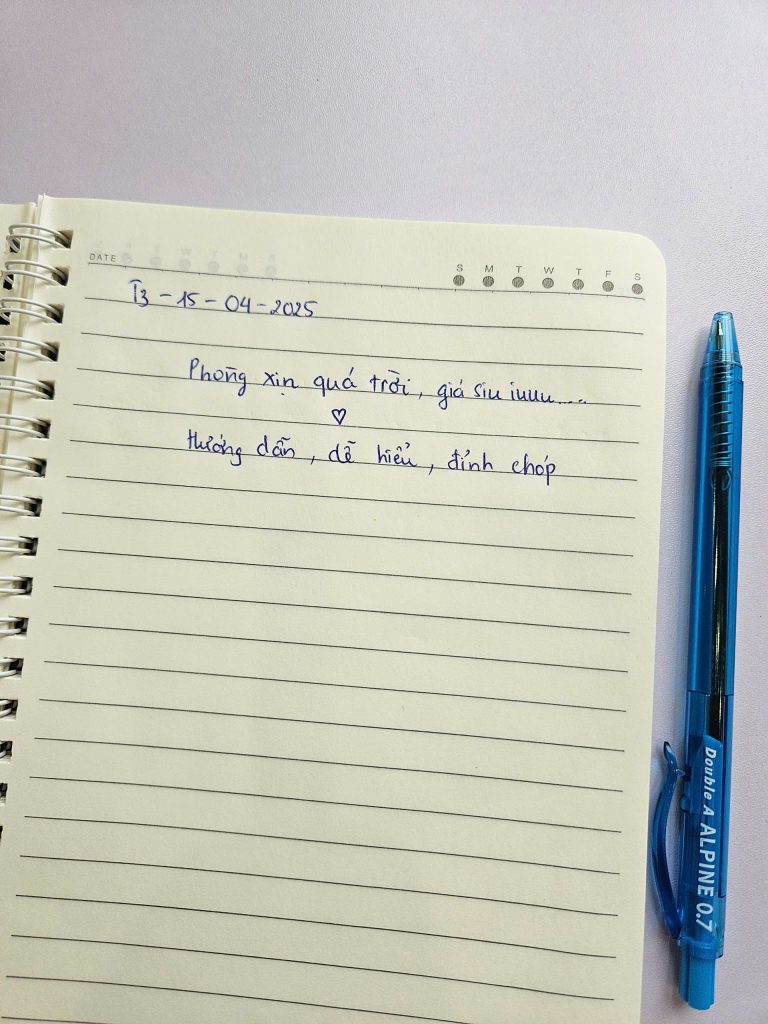 DATE
S M T W T F S
T3 - 15 - 04 - 2025
Phòng xịn quá trời, giá siu iuuu....
♡
Hướng dẫn, dễ hiểu, đỉnh chóp
Double A ALPINE 0.7